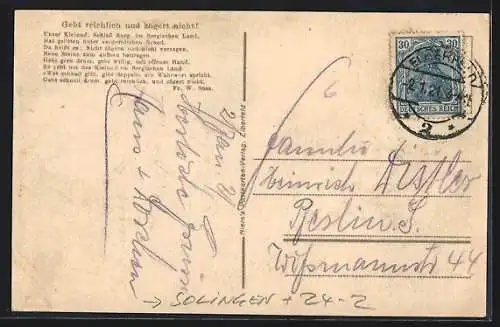 Gebt reichlich und zögert nicht!
Unser Kleinod, Schloß Burg, im Bergischen Land,
Hat gelitten unter
Da heißt es: Nicht zögern und nicht verzagen,
Neue Steine zum Aufbau
Gebt gern, gebt willig, mit offener Hand,
Es gilt um das Kleinod im Bergischen Land
Was schnell gibt, gibt doppelt, ein Wahrwort spricht,
Gebt schnell drum, gebt reichlich, und zögert nicht.
Fr. W.
2/Jan 21
Herzliche Grüsse
Hans
Verlag, Elberfeld
6
30 30
DEUTSCHES REICH
ELBERFELD
2.1.21.
* 2 *
Familie
Heinrich
Berlin S.
Wißmannstr 44
→ SOLINGEN + 24-2